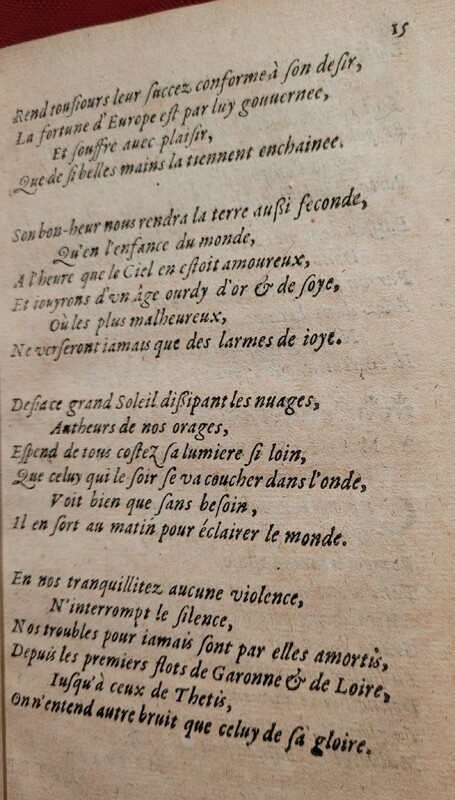 15
Rend tousiours leur succez conforme à son desir,
La fortune d'Europe est par luy gouuernee,
Et souffre auec plaisir,
Que de si belles mains la tiennent enchainee.
Son bon-heur nous rendra la terre aussi feconde,
Qu'en l'enfance du monde,
A l'heure que le Ciel en estoit amoureux,
Et iouyrons d'vn âge ourdy d'or & de soye,
Où les plus malheureux,
Ne verseront iamais que des larmes de ioye.
Desia ce grand Soleil dissipant les nuages,
Autheurs de nos orages,
Espend de tous costez sa lumiere si loin,
Que celuy qui le soir se va coucher dans l'onde,
Voit bien que sans besoin,
Il en sort au matin pour éclairer le monde.
En nos tranquillitez aucune violence,
N'interrompt le silence,
Nos troubles pour iamais sont par elles amortis,
Depuis les premiers flots de Garonne & de Loire,
Iusqu'à ceux de Thetis,
On n'entend autre bruit que celuy de sa gloire.